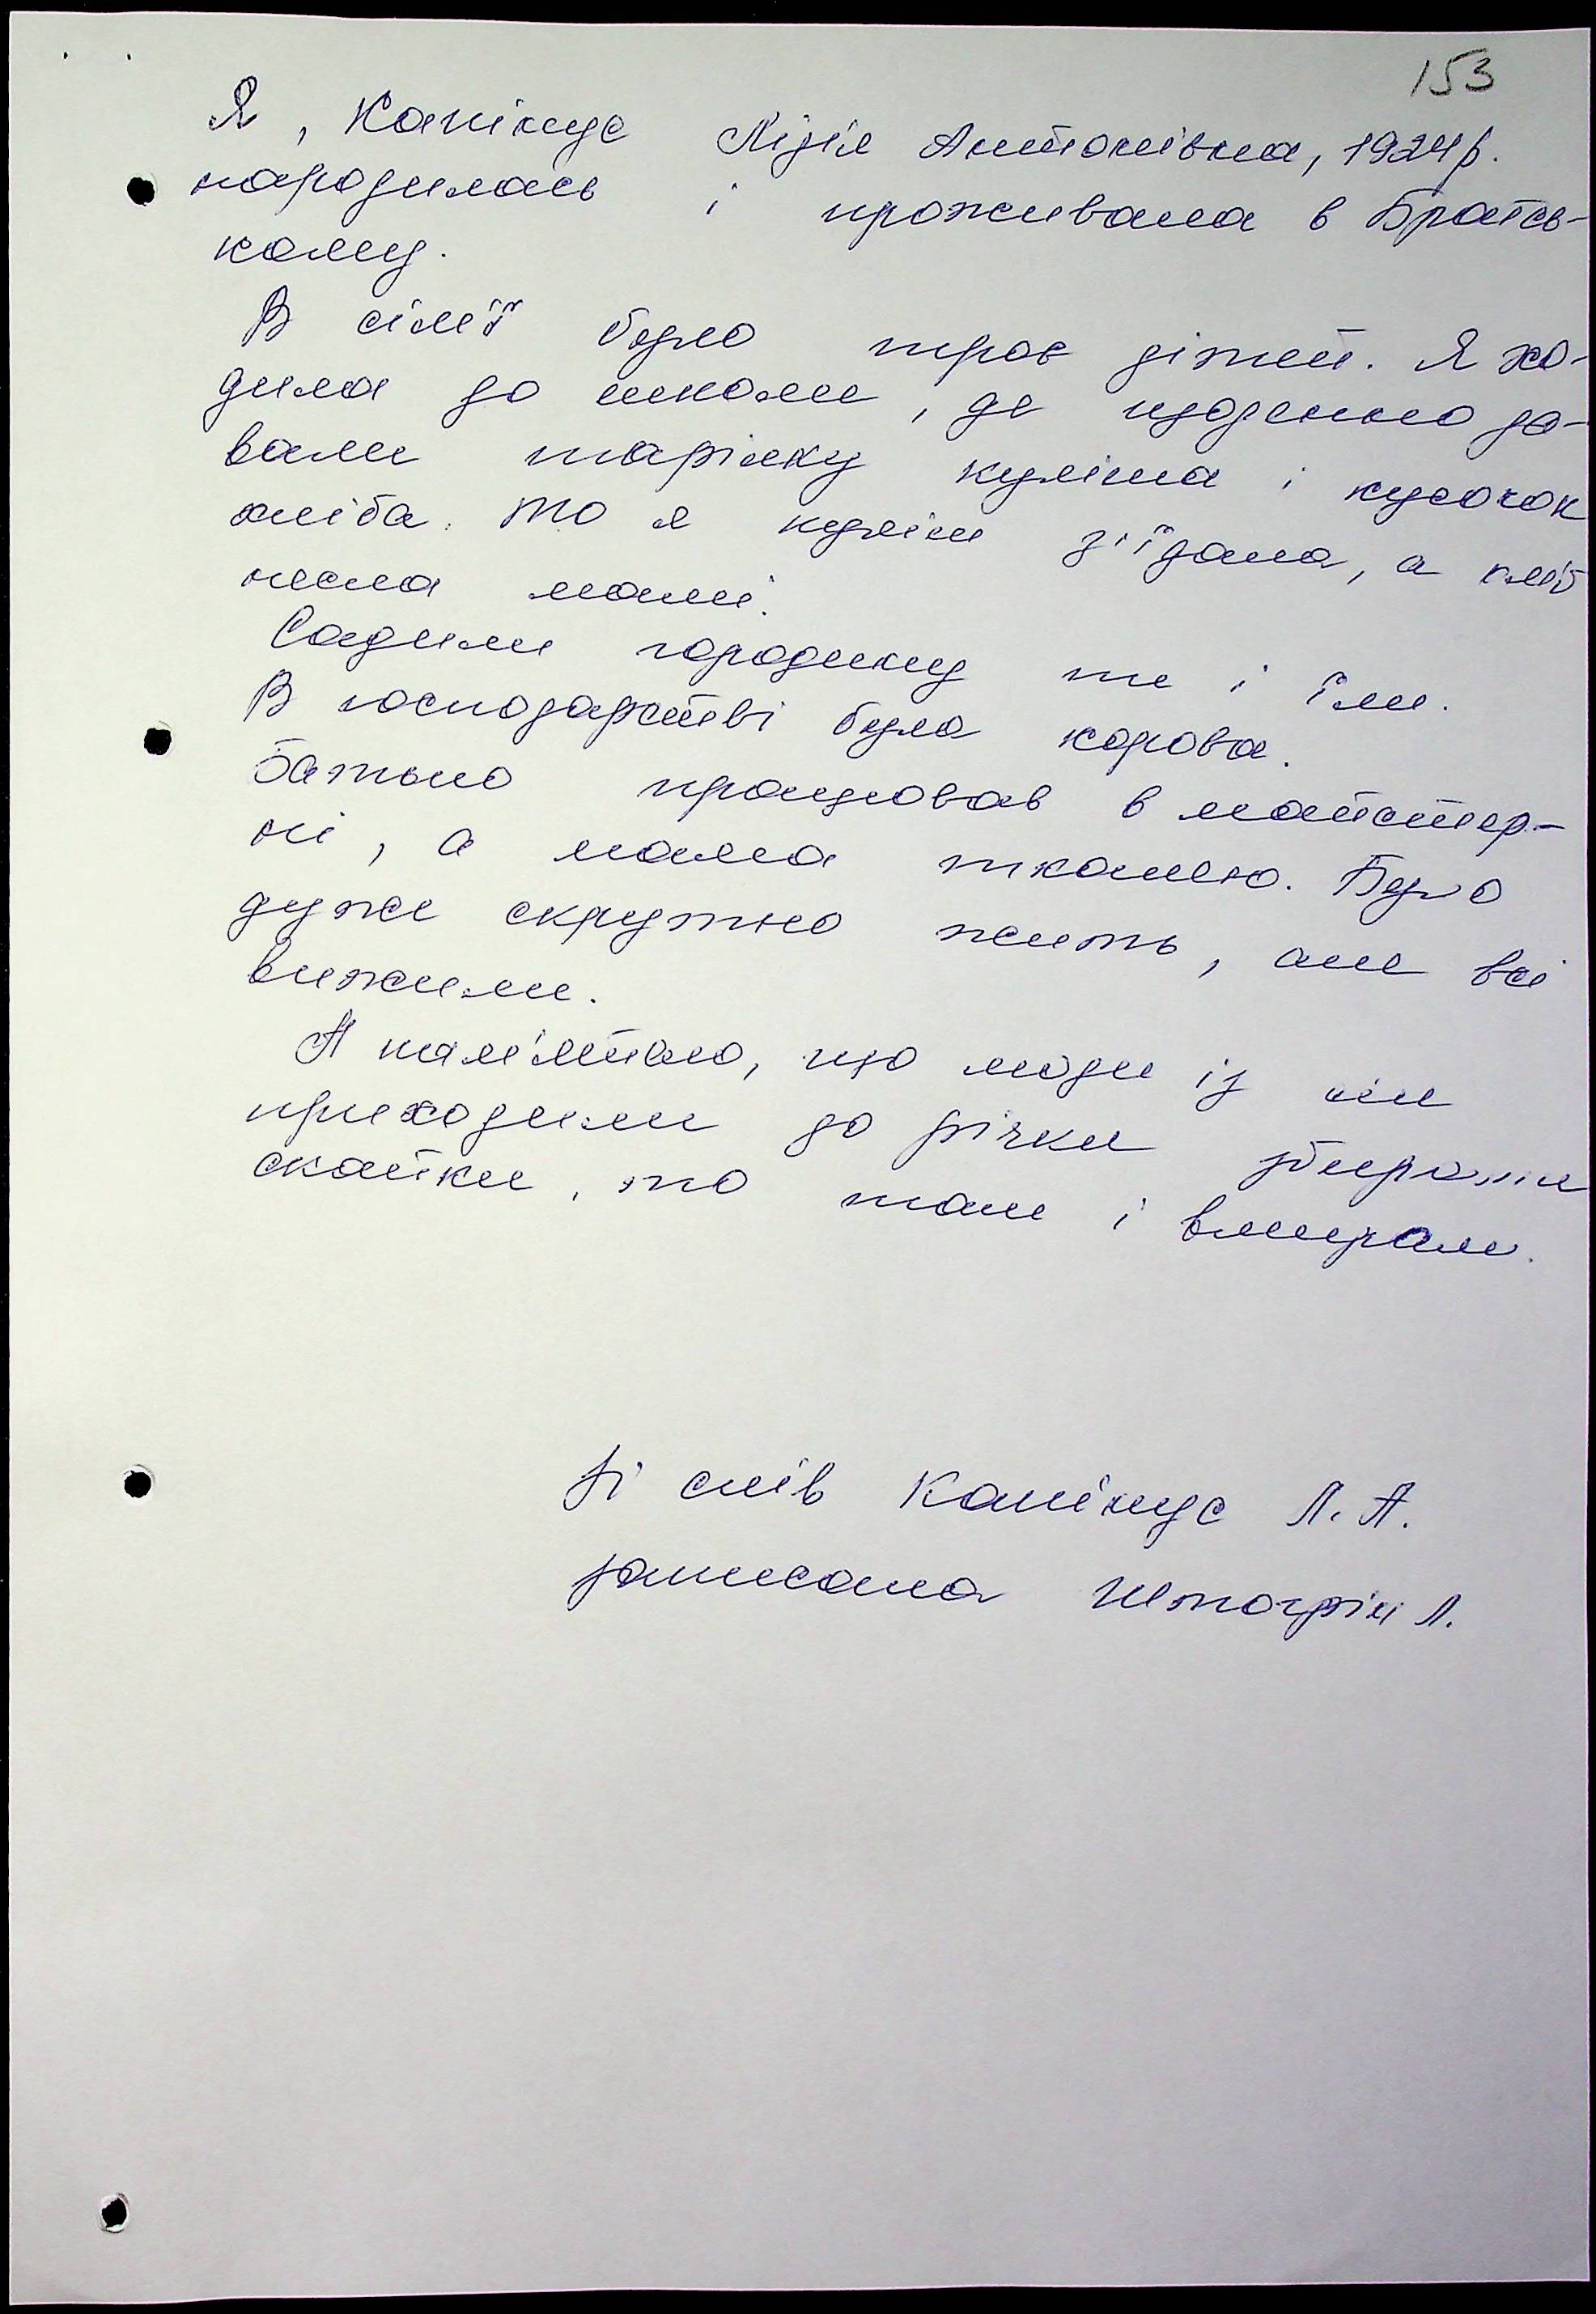 153
Я, Капінус Лідія Антонівна, 1924р.
народилась і проживала в Братсь-
кому.
В сім'ї було троє дітей. Я хо-
дила до школи, де щоденно да-
вали тарілку куліша і кусочок
хліба. То я куліш з'їдала, а хліб
несла мамі.
Садили городину те і їли.
В господарстві була корова.
Батько працював в майстер-
ні, а мама ткалею. Було
дуже скрутно жить, але всі
вижили.
Я пам'ятаю, що люди із сіл
приходили до річки збирали
скойки, то там і вмирали.
Зі слів Капінус Л. А.
записала Л.